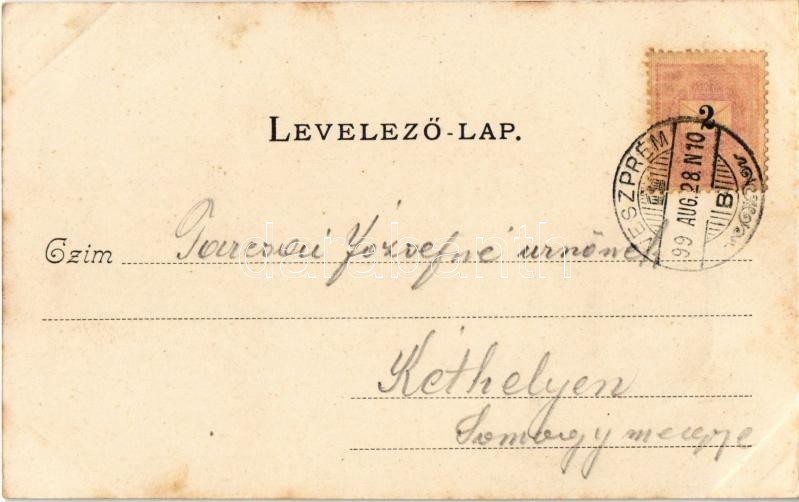 2
LEVELEZŐ-LAP.
VESZPRÉM
99 AUG. 28. N 10
B
Czim Tarcsai Józsefné urnőnek
Kéthelyen
Somogy megye
darabanth